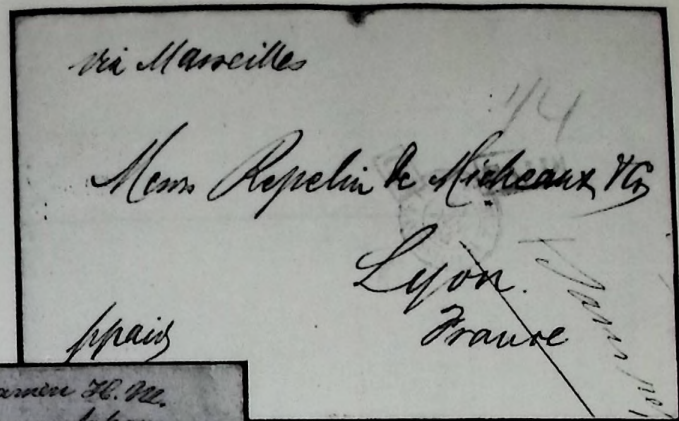 via Marseilles
1/4
Messrs Repelin de Micheaux & Co
Lyon.
France
ppaid
H. M.